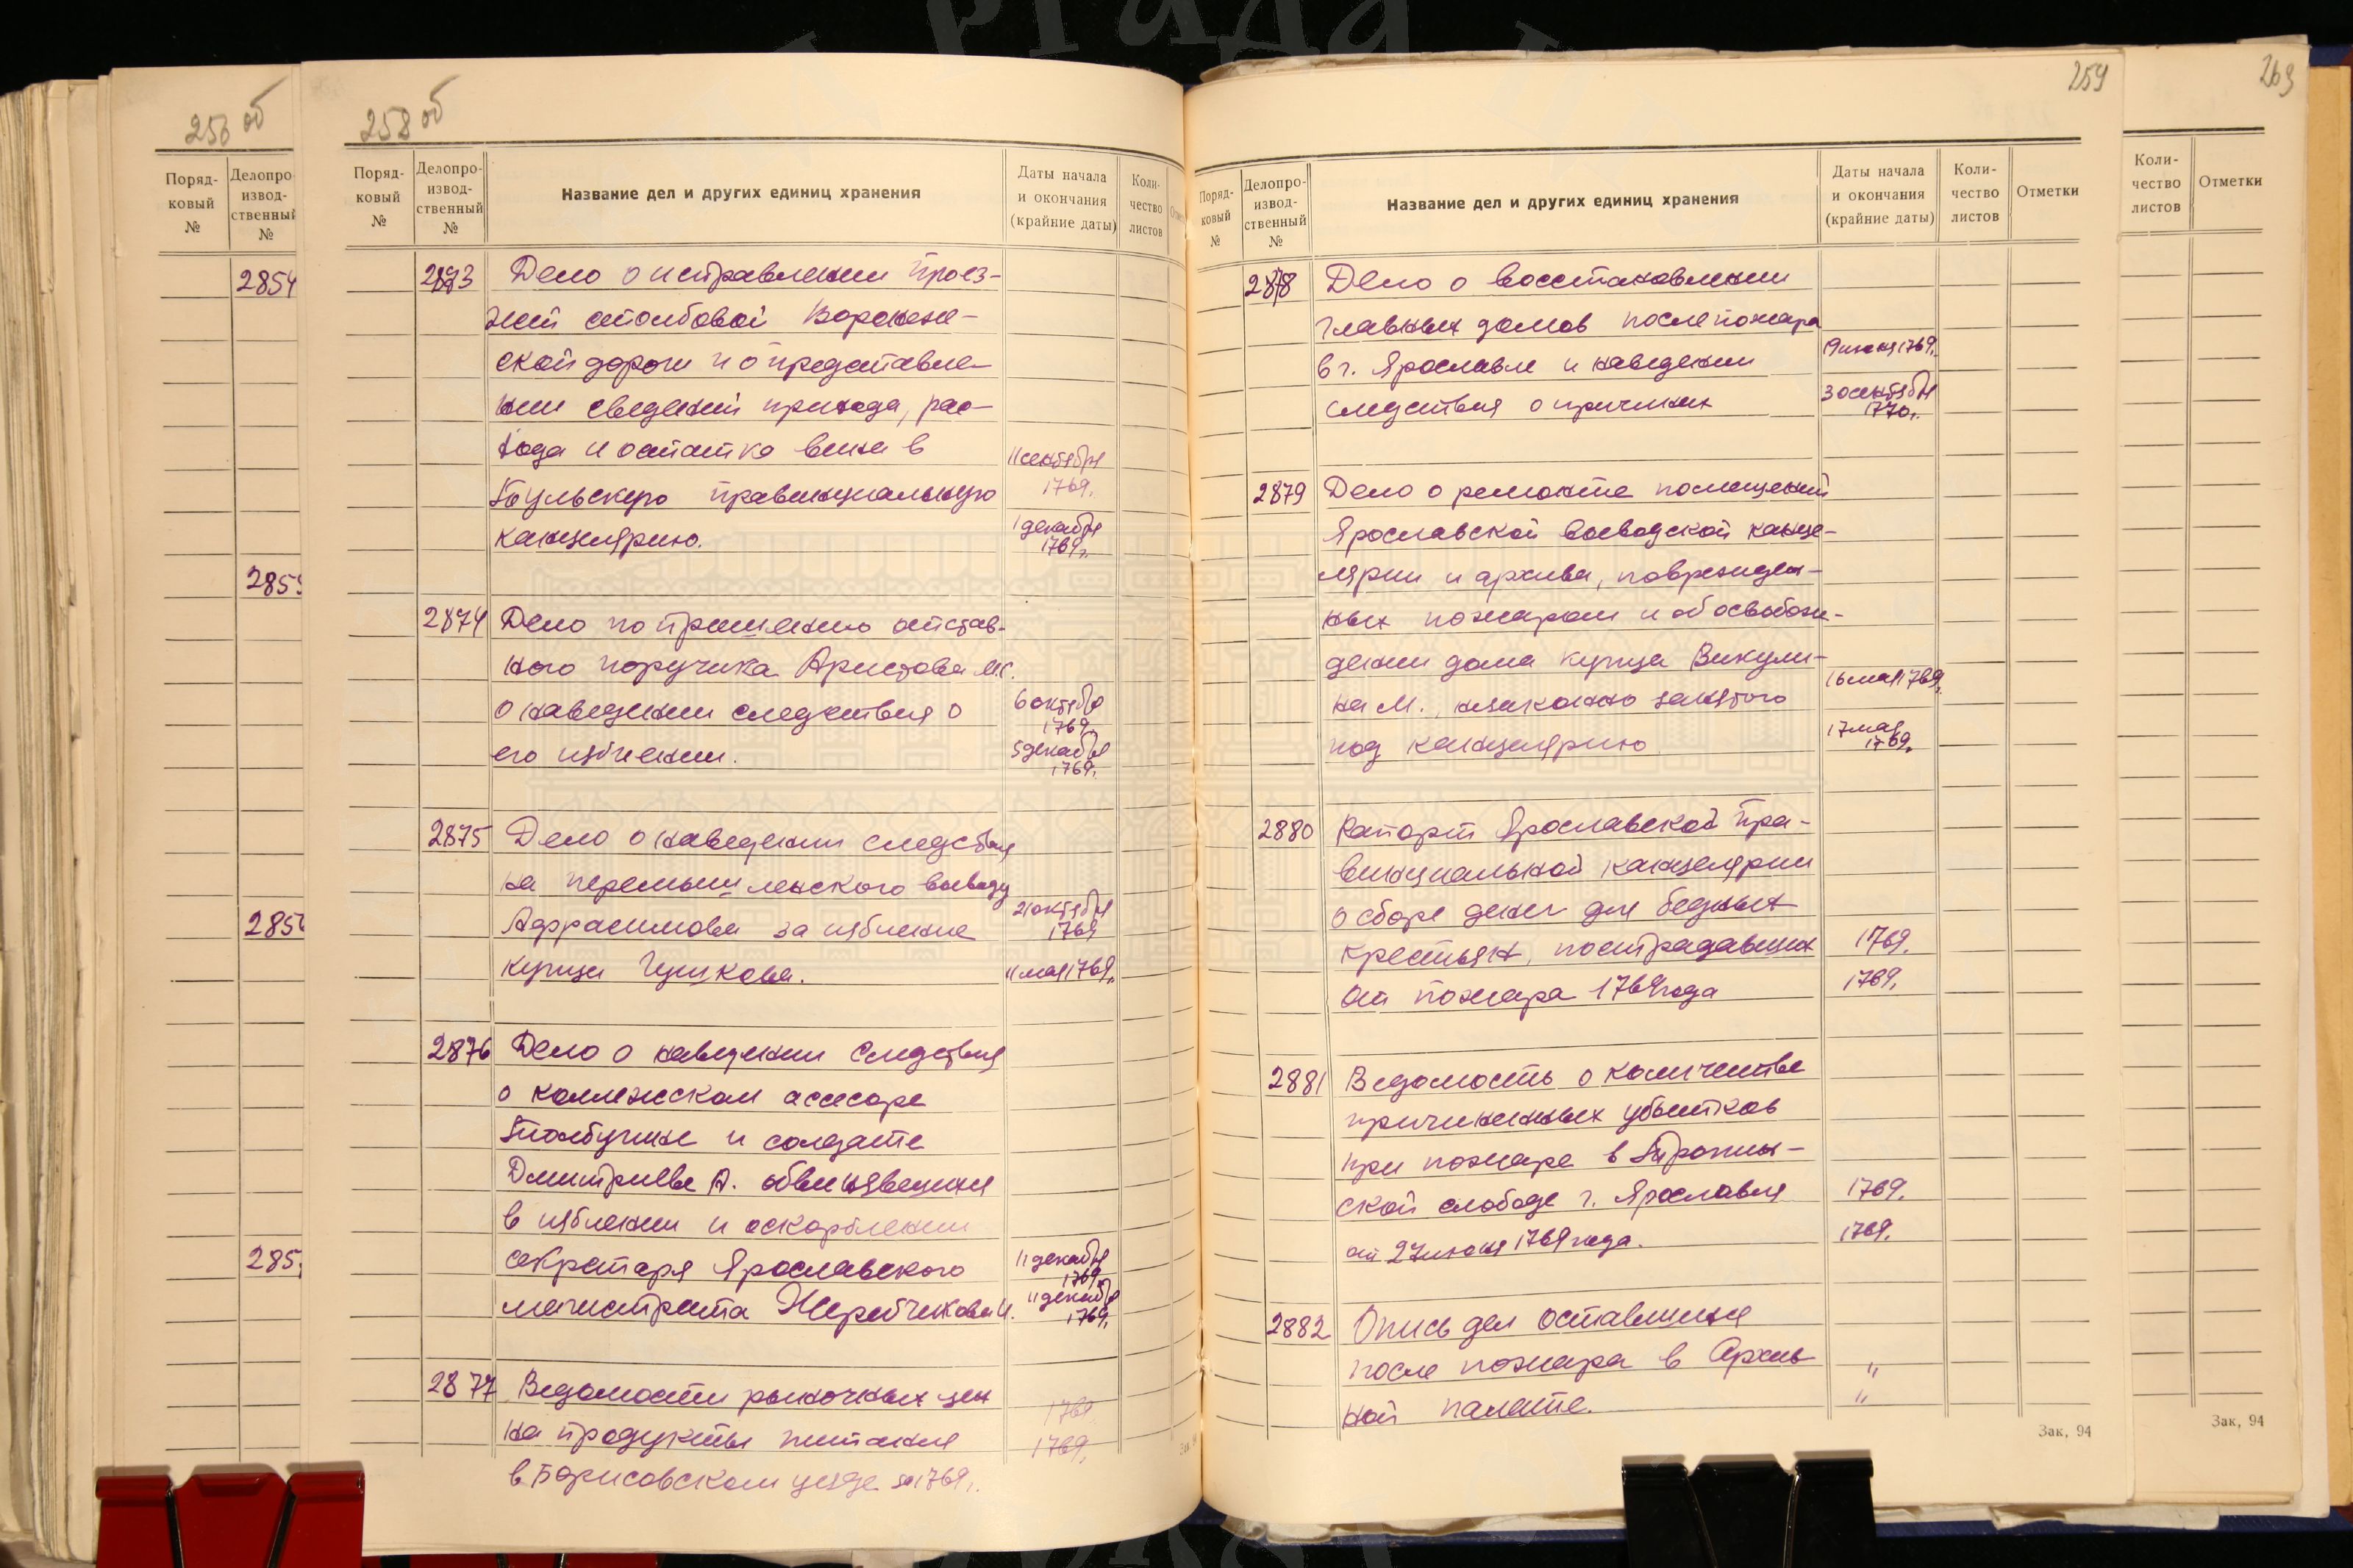 256 об
Поряд-
ковый
№
Делопро-
извод-
ственный
№
2854
285
285
285
258 об
Поряд-
ковый
№
Делопро-
извод-
ственный
№
Название дел и других единиц хранения
Даты начала
и окончания
(крайние даты)
Коли-
чество
листов
2873 Дело о исправлении проез-
жей столбовой Воронеж-
ской дороги и о представле-
нии сведений прихода, рас-
хода и остатка вина в
Тульскую правинциальную
канцелярию.
11 сентября
1769.
1 декабря
1769г.
2874 Дело по прошению отстав-
ного поручика Аристова М.С.
о наведении следствия о
его избиении.
6 октября
1769.
5 декабря
1769.
2875 Дело о наведении следствия
на перемышленского воеводу
Аффросимова за избиение
купца Чушкова.
21 октября
1769
11 мая 1769г.
2876 Дело о наведении следствия
о коллежском асессоре
Толбузине и солдате
Дмитриеве А. обвинявшихся
в избиении и оскорблении
секретаря Ярославского
магистрата Жеребчикова И.
11 декабря
1769.
11 декабря
1769.
2877 Ведомости рыночных цен
на продукты питания
в Борисовском уезде за 1769г.
1769
1769.
259
Поряд-
ковый
№
Делопро-
извод-
ственный
№
Название дел и других единиц хранения
Даты начала
и окончания
(крайние даты)
Коли-
чество
листов
Отметки
2878 Дело о восстановлении
главных домов после пожара
в г. Ярославле и наведении
следствия о причинах
19 июня 1769г.
3 октября
1770г.
2879 Дело о ремонте помещений
Ярославской воеводской канце-
лярии и архива, поврежден-
ных пожаром и об освобож-
дении дома купца Викули-
на М., незаконно занятого
под канцелярию
16 мая 1769г.
17 мая
1769.
2880 Рапорт Ярославской пра-
винциальной канцелярии
о сборе денег для бедных
крестьян, пострадавших
от пожара 1769 года
1769.
1769.
2881 Ведомость о количестве
причиненных убытков
при пожаре в Тропин-
ской слободе г. Ярославля
от 27 июня 1769 года.
1769.
1769.
2882 Опись дел оставшихся
после пожара в Архив
ной палате.
"
"
Зак, 94
263
Коли-
чество
листов
Отметки
Зак, 94